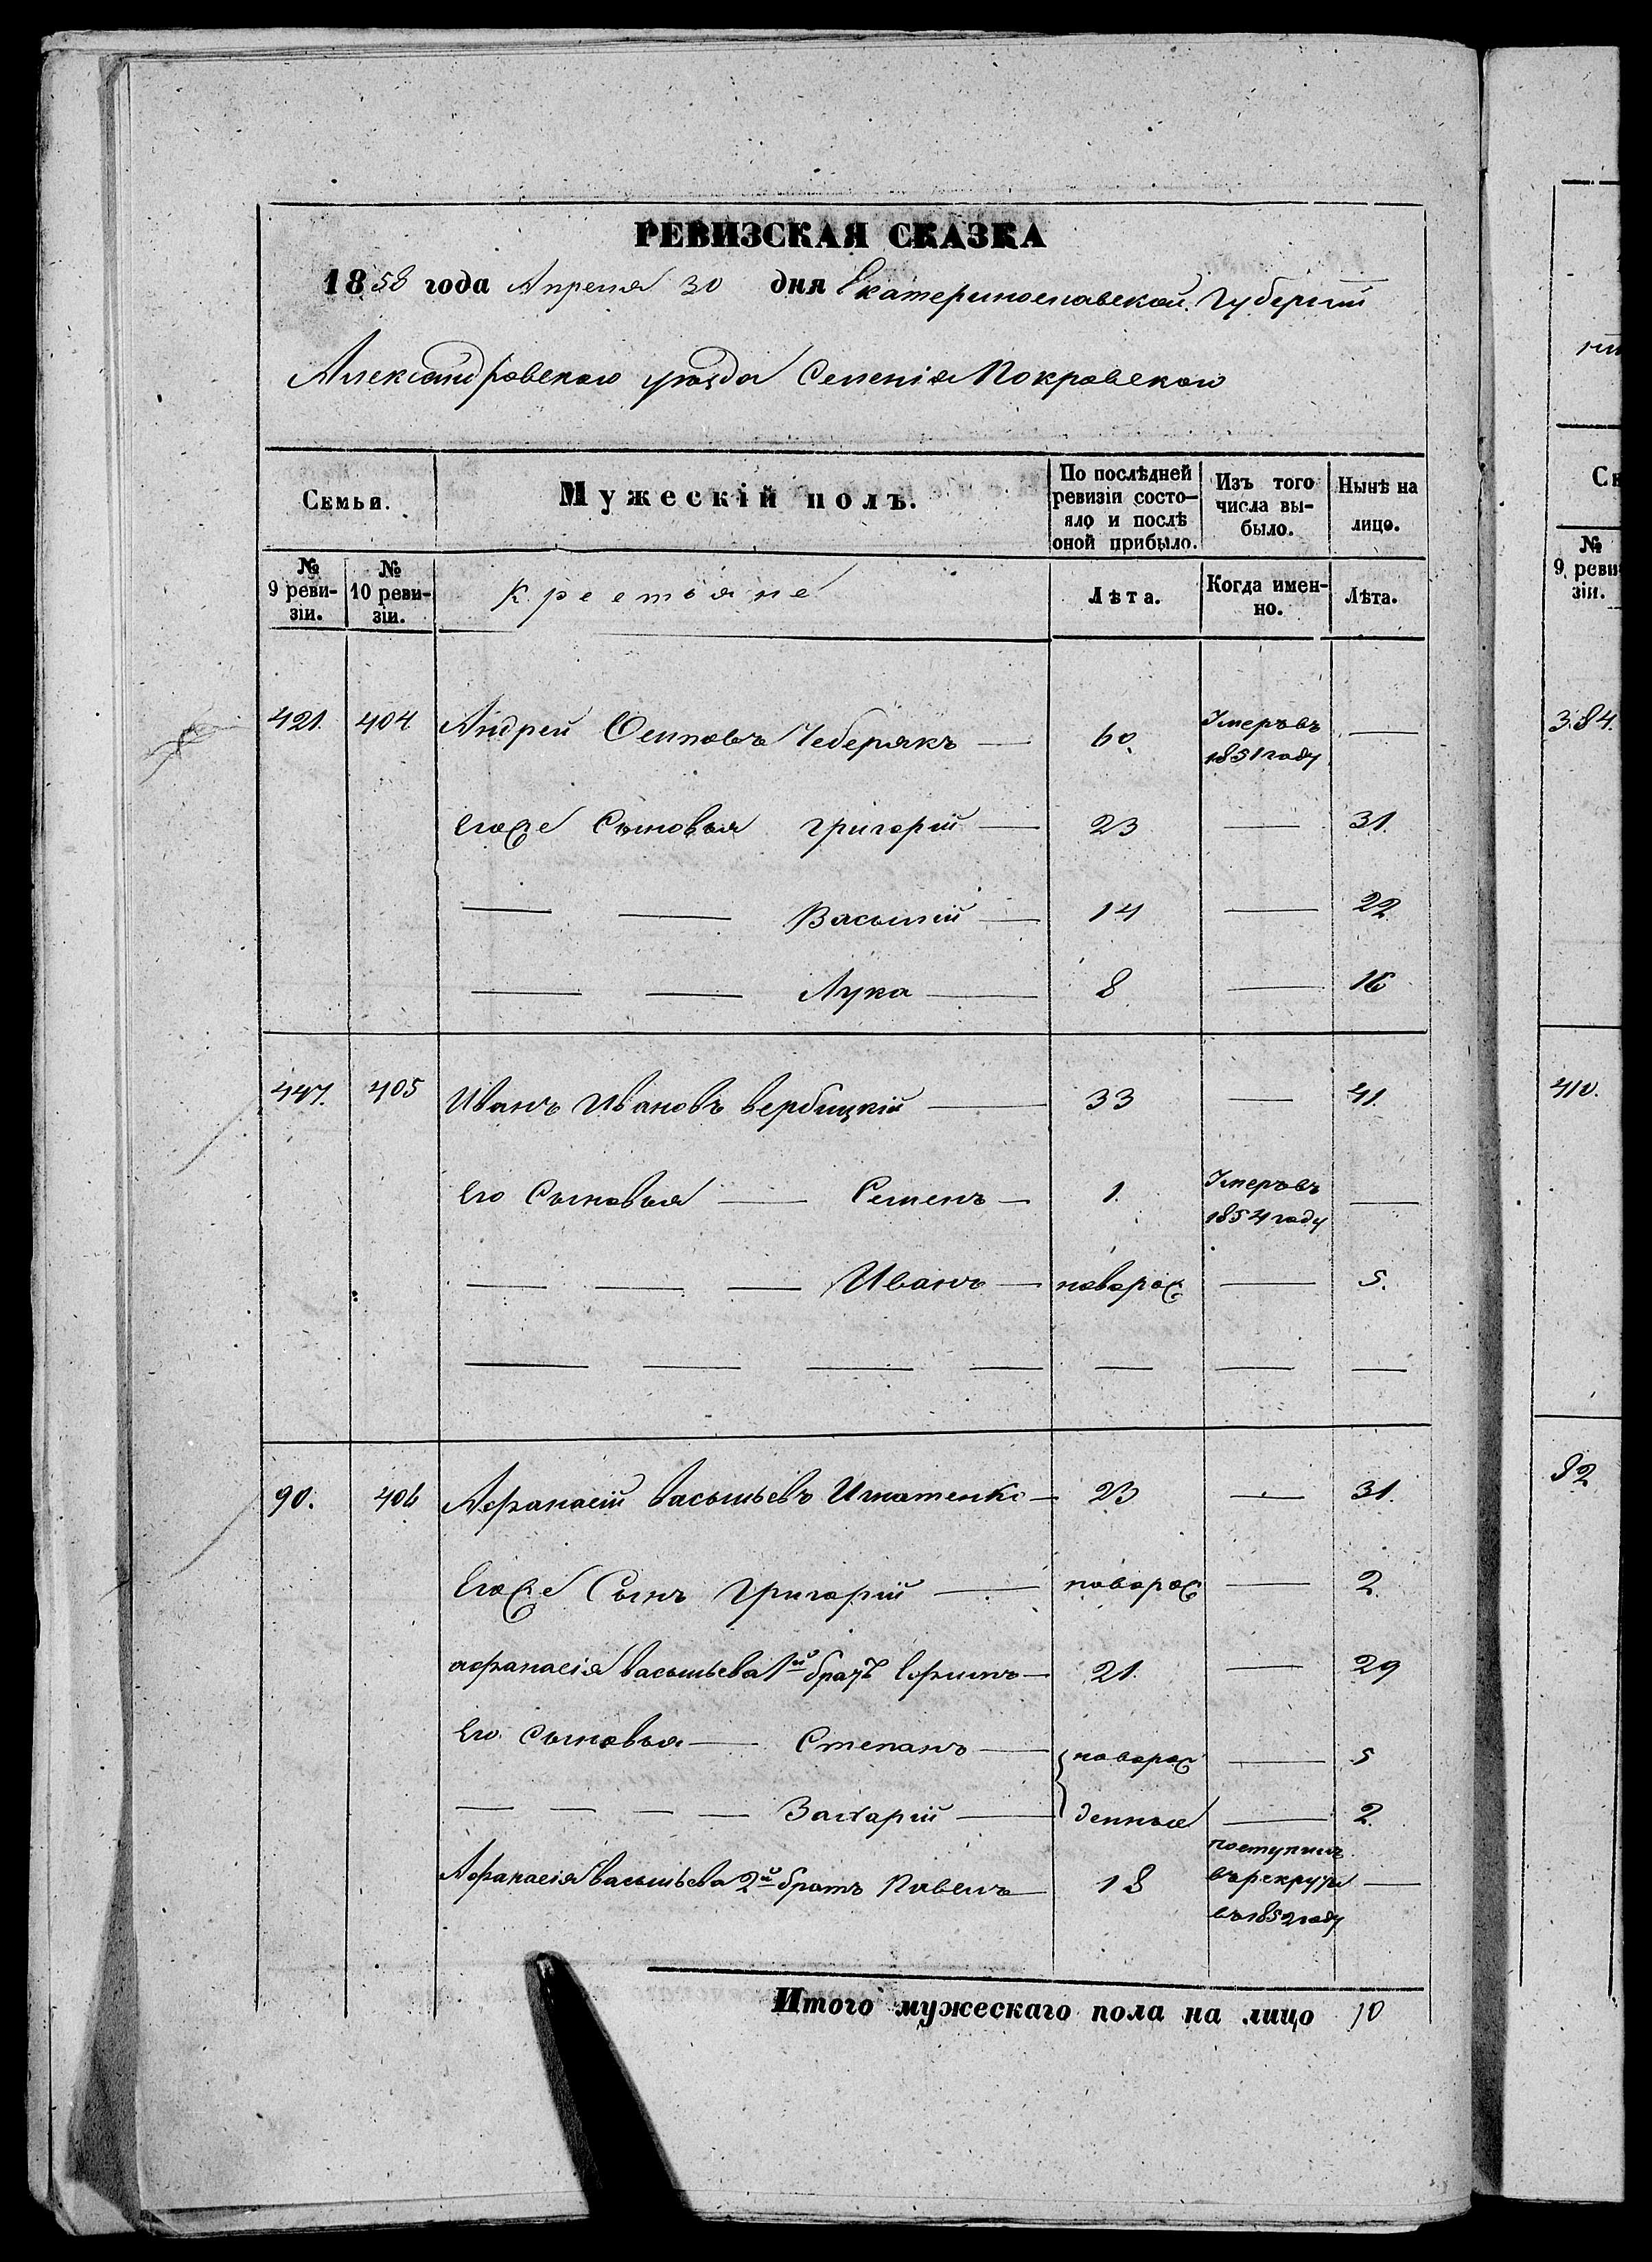 РЕВИЗСКАЯ СКАЗКА
1858 года Апреля 30 дня Екатеринославской Губерніи
Александровскаго уѣзда Селенія Покровскаго
Семьи.
Мужескій полъ.
По послѣдней ревизіи состояло и послѣ оной прибыло.
Изъ того числа выбыло.
Нынѣ на лицо.
№ 9 ревизіи.
№ 10 ревизіи.
Крестьяне
Лѣта.
Когда именно.
Лѣта.
421. 404 Андрей Осиповъ Чеберякъ — 60. Умеръ въ 1851 году —
Егоже Сыновья Григорій — 23 — 31.
— — Василій — 14 — 22
— — Лука — 8 — 16
447. 405 Иванъ Ивановъ Вербицкій — 33 — 41.
Его Сыновья — Семенъ — 1. Умеръ въ 1854 году —
— — — Иванъ — новорож — 5.
— — — — — — —
90. 406 Афанасій Васильевъ Игнатенко — 23 — 31.
Егоже Сынъ Григорій — новорож — 2
Афанасія Васильева 1й братъ Ефимъ — 21. — 29
Его Сыновья — Степанъ — новорож — 5
— — — — Захарій — денные — 2.
Афанасія Васильева 2й братъ Павелъ — 18 поступилъ въ рекруты въ 1852 году —
Итого мужескаго пола на лицо 10
нш
Се
№
9 реви
зіи.
384.
410.
82